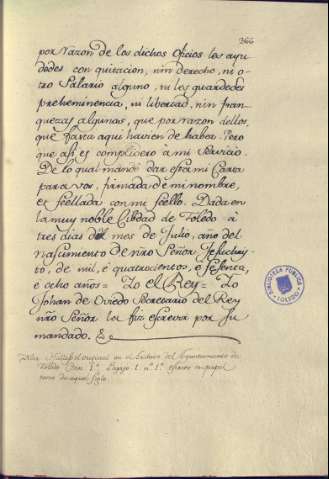 366
por razon de los dichos Oficios les ayu
dedes con quitacion, nin derecho, ni o
tro Salario alguno, ni les guardedes
preheminencia, ni libertad, nin fran
quezas algunas, que por razon dellos,
que fasta aqui havien de haber. Pero
que asi es complidero à mi servicio.
De lo qual mandè dar esta mi Carta
para vos, firmada de mi nombre,
et sellada con mi sello. Dada en
la muy noble Cibdad de Toledo à
tres dias del mes de Julio, año del
nascimiento de nño Señor Jesuchris
to, de mil, è quatrocientos, è sesenta,
è ocho años = Yo el Rey = Yo
Johan de Oviedo Secretario del Rey
nño Señor la fiz escrevir por su
mandado. &c
Hallase el original en el Archivo del Ayuntamiento de
Toledo Legajo 1. n.º 1.º escrito en papel
de aquel siglo.
BIBLIOTECA PUBLICA
TOLEDO